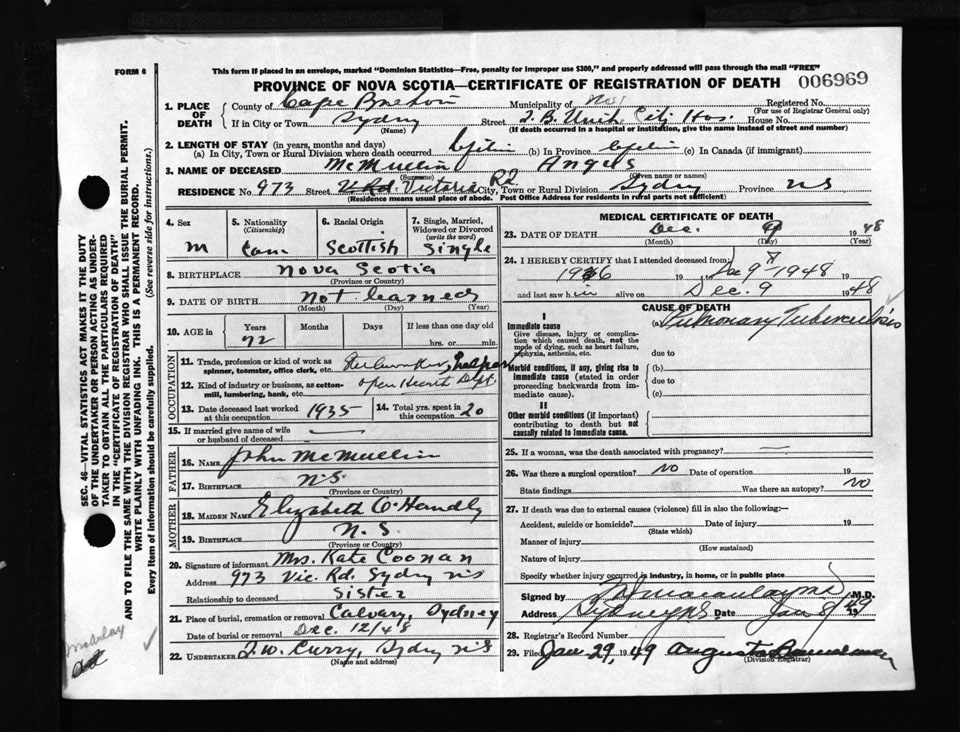 FORM 6
This form if placed in an envelope, marked "Dominion Statistics—Free, penalty for improper use $300," and properly addressed will pass through the mail "FREE"
PROVINCE OF NOVA SCOTIA—CERTIFICATE OF REGISTRATION OF DEATH
006969
1. PLACE OF DEATH
County of Cape Breton Municipality of Registered No.
(For use of Registrar General only)
If in City or Town Sydney Street T. B. Unit City Hos. House No.
(Name) (If death occurred in a hospital or institution, give the name instead of street and number)
2. LENGTH OF STAY (in years, months and days)
(a) In City, Town or Rural Division where death occurred Lifetime (b) In Province Life (c) In Canada (if immigrant)
3. NAME OF DECEASED McMullin Angus
(Surname) (Given name or names)
RESIDENCE No. 973 Street Victoria Rd City, Town or Rural Division Sydney Province NS
(Residence means usual place of abode. Post Office Address for residents in rural parts not sufficient)
4. Sex
M
5. Nationality
(Citizenship)
Can
6. Racial Origin
Scottish
7. Single, Married, Widowed or Divorced
(write the word)
Single
8. BIRTHPLACE Nova Scotia
(Province or Country)
9. DATE OF BIRTH Not learned
(Month) (Day) (Year)
10. AGE in
Years Months Days If less than one day old
72 hrs. or min.
OCCUPATION
11. Trade, profession or kind of work as spinner, teamster, office clerk, etc. Steelworker, helper
12. Kind of industry or business, as cotton-mill, lumbering, bank, etc. Open Hearth Dept.
13. Date deceased last worked at this occupation 1935
14. Total yrs. spent in this occupation 20
15. If married give name of wife or husband of deceased —
FATHER
16. Name John McMullin
17. Birthplace N.S.
(Province or Country)
MOTHER
18. Maiden Name Elizabeth O'Handly
19. Birthplace N. S.
(Province or Country)
20. Signature of informant Mrs. Kate Coonan
Address 973 Vic. Rd. Sydney NS
Relationship to deceased Sister
21. Place of burial, cremation or removal Calvary, Sydney
Date of burial or removal Dec. 12/48
22. UNDERTAKER T.W. Curry, Sydney NS
(Name and address)
MEDICAL CERTIFICATE OF DEATH
23. DATE OF DEATH Dec. 9 1948
(Month) (Day) (Year)
24. I HEREBY CERTIFY that I attended deceased from:
1936 19 to Dec 9 - 1948 19
and last saw him alive on Dec. 9 1948
CAUSE OF DEATH
I
Immediate cause
Give disease, injury or complication which caused death, not the mode of dying, such as heart failure, asphyxia, asthenia, etc.
(a) Pulmonary Tuberculosis
due to
Morbid conditions, if any, giving rise to immediate cause (stated in order proceeding backwards from immediate cause).
(b)
due to
(c)
II
Other morbid conditions (if important) contributing to death but not causally related to immediate cause.
25. If a woman, was the death associated with pregnancy? —
26. Was there a surgical operation? No Date of operation 19
State findings Was there an autopsy? No
27. If death was due to external causes (violence) fill in also the following:—
Accident, suicide or homicide? Date of injury 19
(State which)
Manner of injury
(How sustained)
Nature of injury
Specify whether injury occurred in industry, in home, or in public place
Signed by M.D.
Address Sydney NS. Date Jan 8/49
28. Registrar's Record Number
29. Filed Jan 29, 1949 Augusta
(Division Registrar)
SEC. 46—VITAL STATISTICS ACT MAKES IT THE DUTY
OF THE UNDERTAKER OR PERSON ACTING AS UNDER-
TAKER TO OBTAIN ALL THE PARTICULARS REQUIRED
IN THE "CERTIFICATE OF REGISTRATION OF DEATH"
AND TO FILE THE SAME WITH THE DIVISION REGISTRAR WHO SHALL ISSUE THE BURIAL PERMIT.
WRITE PLAINLY WITH UNFADING INK. THIS IS A PERMANENT RECORD.
Every item of information should be carefully supplied. (See reverse side for instructions.)